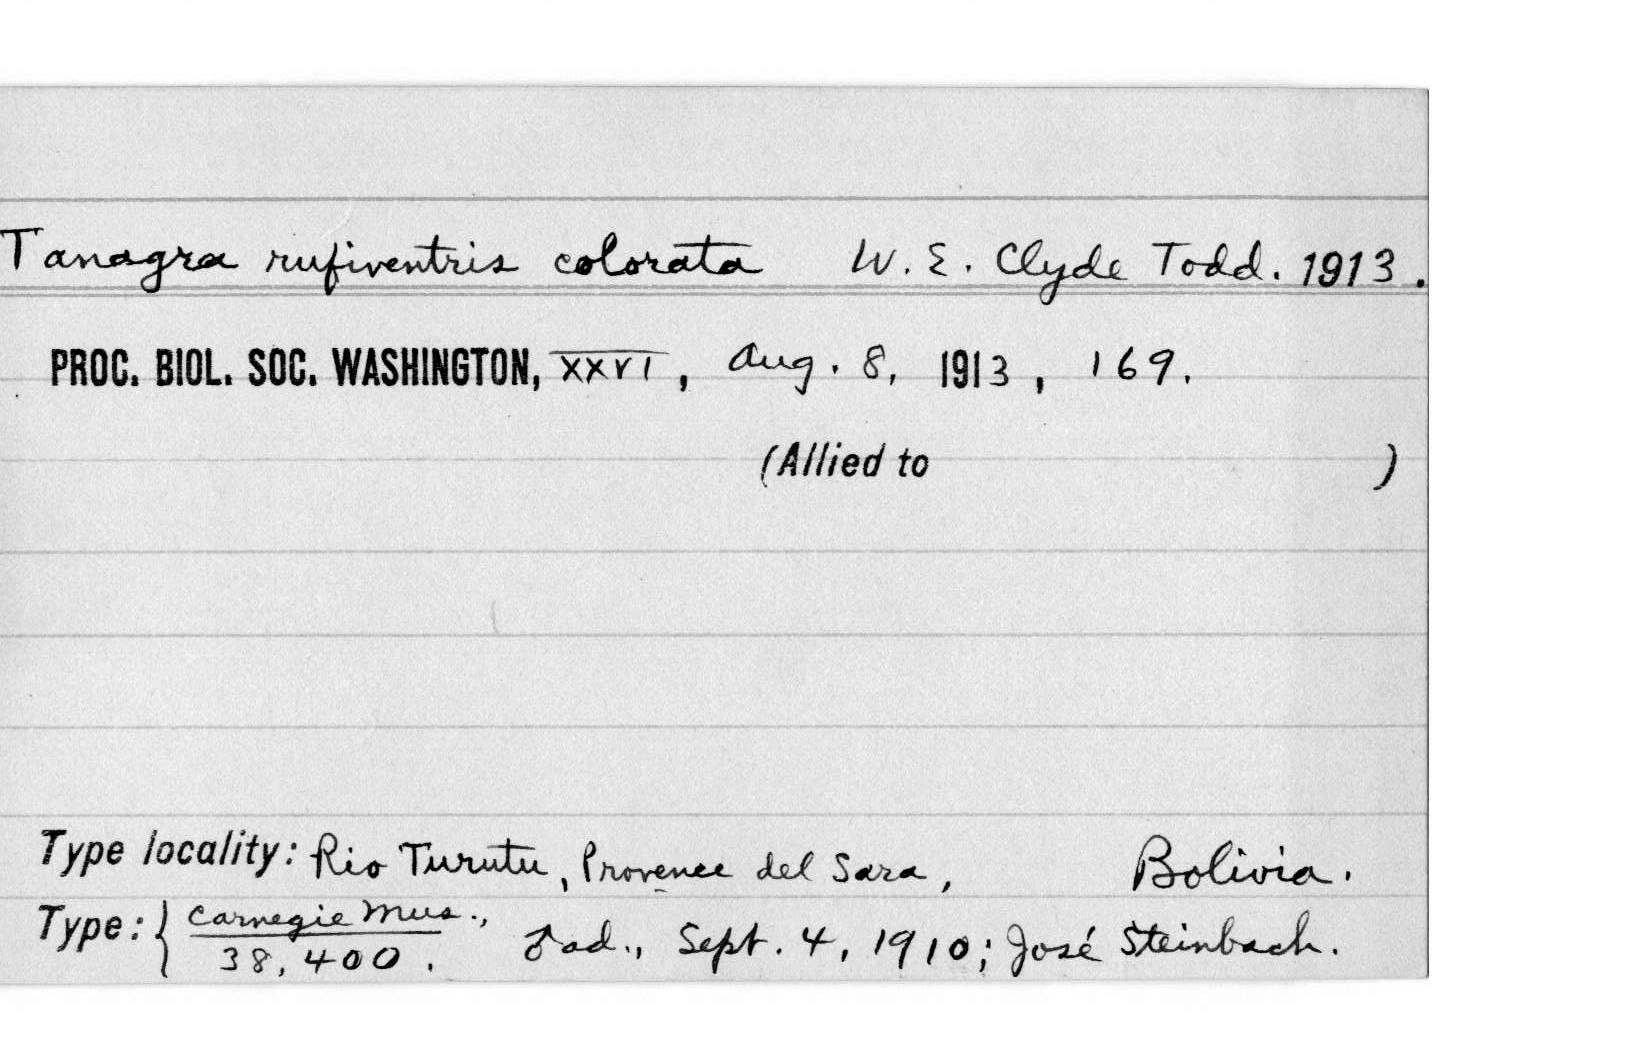 Tanagra rufiventris colorata W. E. Clyde Todd. 1913.
PROC. BIOL. SOC. WASHINGTON, XXVI, Aug. 8, 1913, 169.
(Allied to )
Type locality: Rio Turutu, Provence del Sara, Bolivia.
Type: { Carnegie Mus., ♂ ad., Sept. 4, 1910; José Steinbach.
38,400.